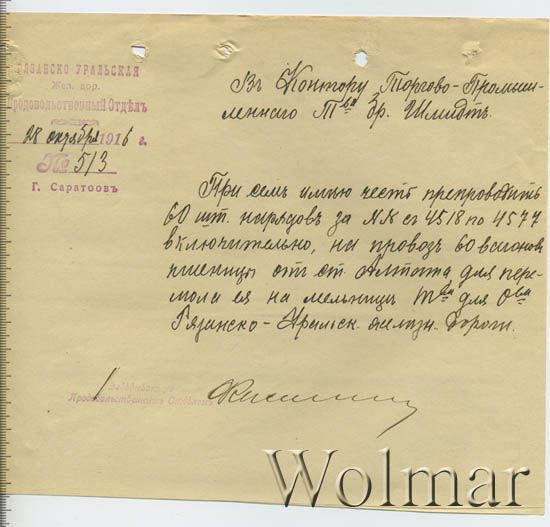 РЯЗАНСКО-УРАЛЬСКАЯ
Жел. дор.
Продовольственный Отдѣлъ
28 октября 1916 г.
№ 513
Г. Саратоовъ
Въ Контору Торгово-Промыш-
леннаго Тва бр. Шмидтъ.
При семъ имѣю честь препроводить
60 шт. нарядовъ за №№ съ 4518 по 4577
включительно, на провозъ 60 вагоновъ
пшеницы отъ ст. Алтата для пере-
мола ея на мельницѣ Тва для Ова
Рязанско-Уральск. желѣзн. дороги.
Завѣдывающ
Продовольственнымъ Отдѣломъ
Wolmar